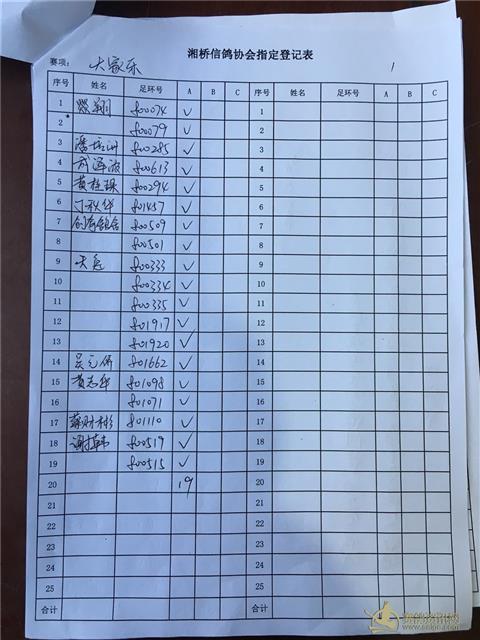 湘桥信鸽协会指定登记表
赛项： 大家乐 1
序号 姓名 足环号 A B C 序号 姓名 足环号 A B C
1 800074 ✓ 1
2 800079 ✓ 2
3 800285 ✓ 3
4 800613 ✓ 4
5 黄桂强 800294 ✓ 5
6 丁秋华 801457 ✓ 6
7 800509 ✓ 7
8 800501 ✓ 8
9 800333 ✓ 9
10 800334 ✓ 10
11 800335 ✓ 11
12 801917 ✓ 12
13 801920 ✓ 13
14 吴元侨 801662 ✓ 14
15 黄志华 801098 ✓ 15
16 801071 ✓ 16
17 蔡财彬 801110 ✓ 17
18 800519 ✓ 18
19 800515 ✓ 19
20 19 20
21 21
22 22
23 23
24 24
25 25
合计 合计